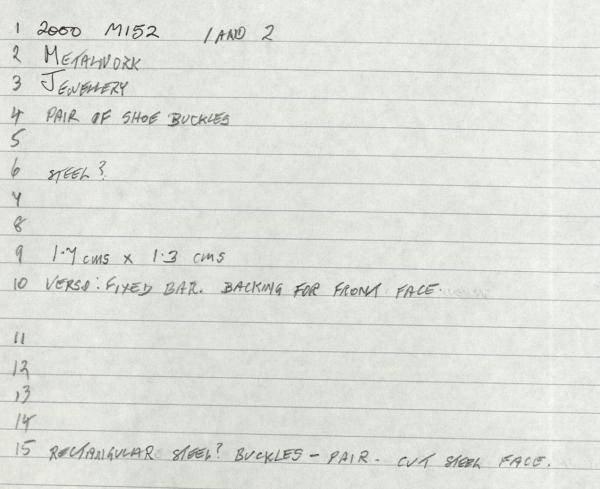 1 2000 M152 1 AND 2
2 METALWORK
3 JEWELLERY
4 PAIR OF SHOE BUCKLES
5
6 STEEL?
7
8
9 1.7 cms x 1.3 cms
10 VERSO: FIXED BAR. BACKING FOR FRONT FACE.
11
12
13
14
15 RECTANGULAR STEEL? BUCKLES - PAIR. CUT STEEL FACE.